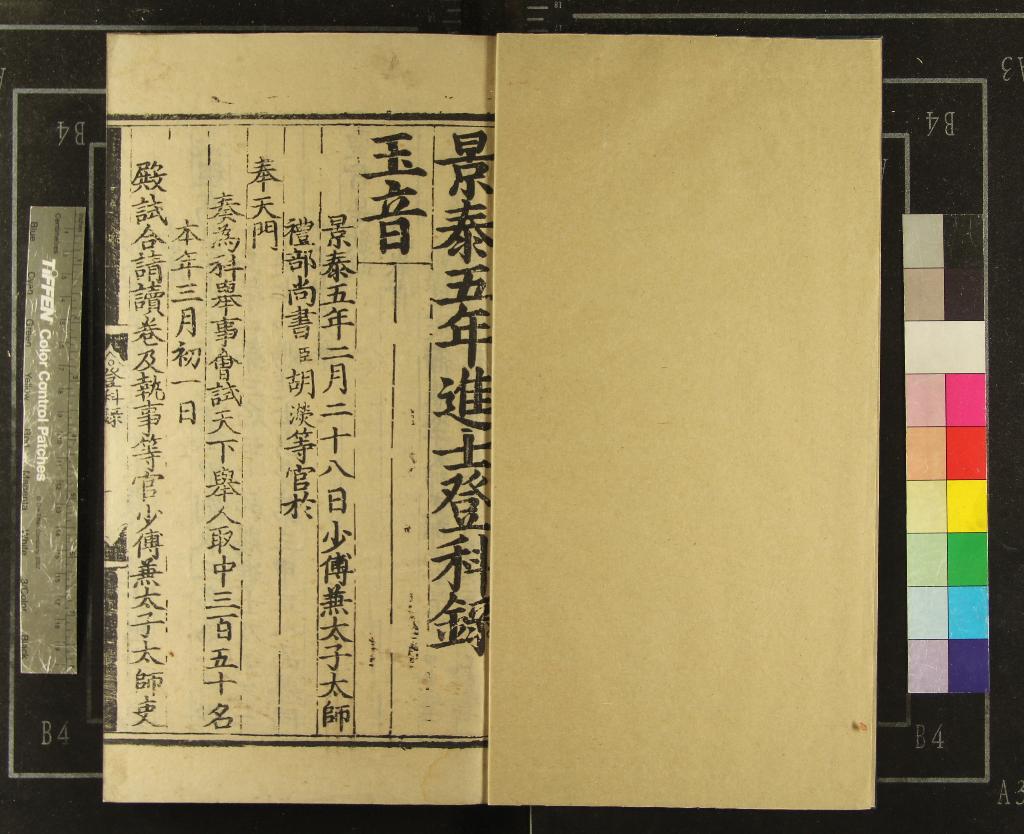 景泰五年進士登科錄
玉音
景泰五年二月二十八日少傅兼太子太師
禮部尚書臣胡濙等官於
奉天門
奏為科舉事會試天下舉人取中三百五十名
本年三月初一日
殿試合請讀卷及執事等官少傅兼太子太師吏
登科錄
TIFFEN Color Control Patches
B4
B4
B4
B4
A3
A3